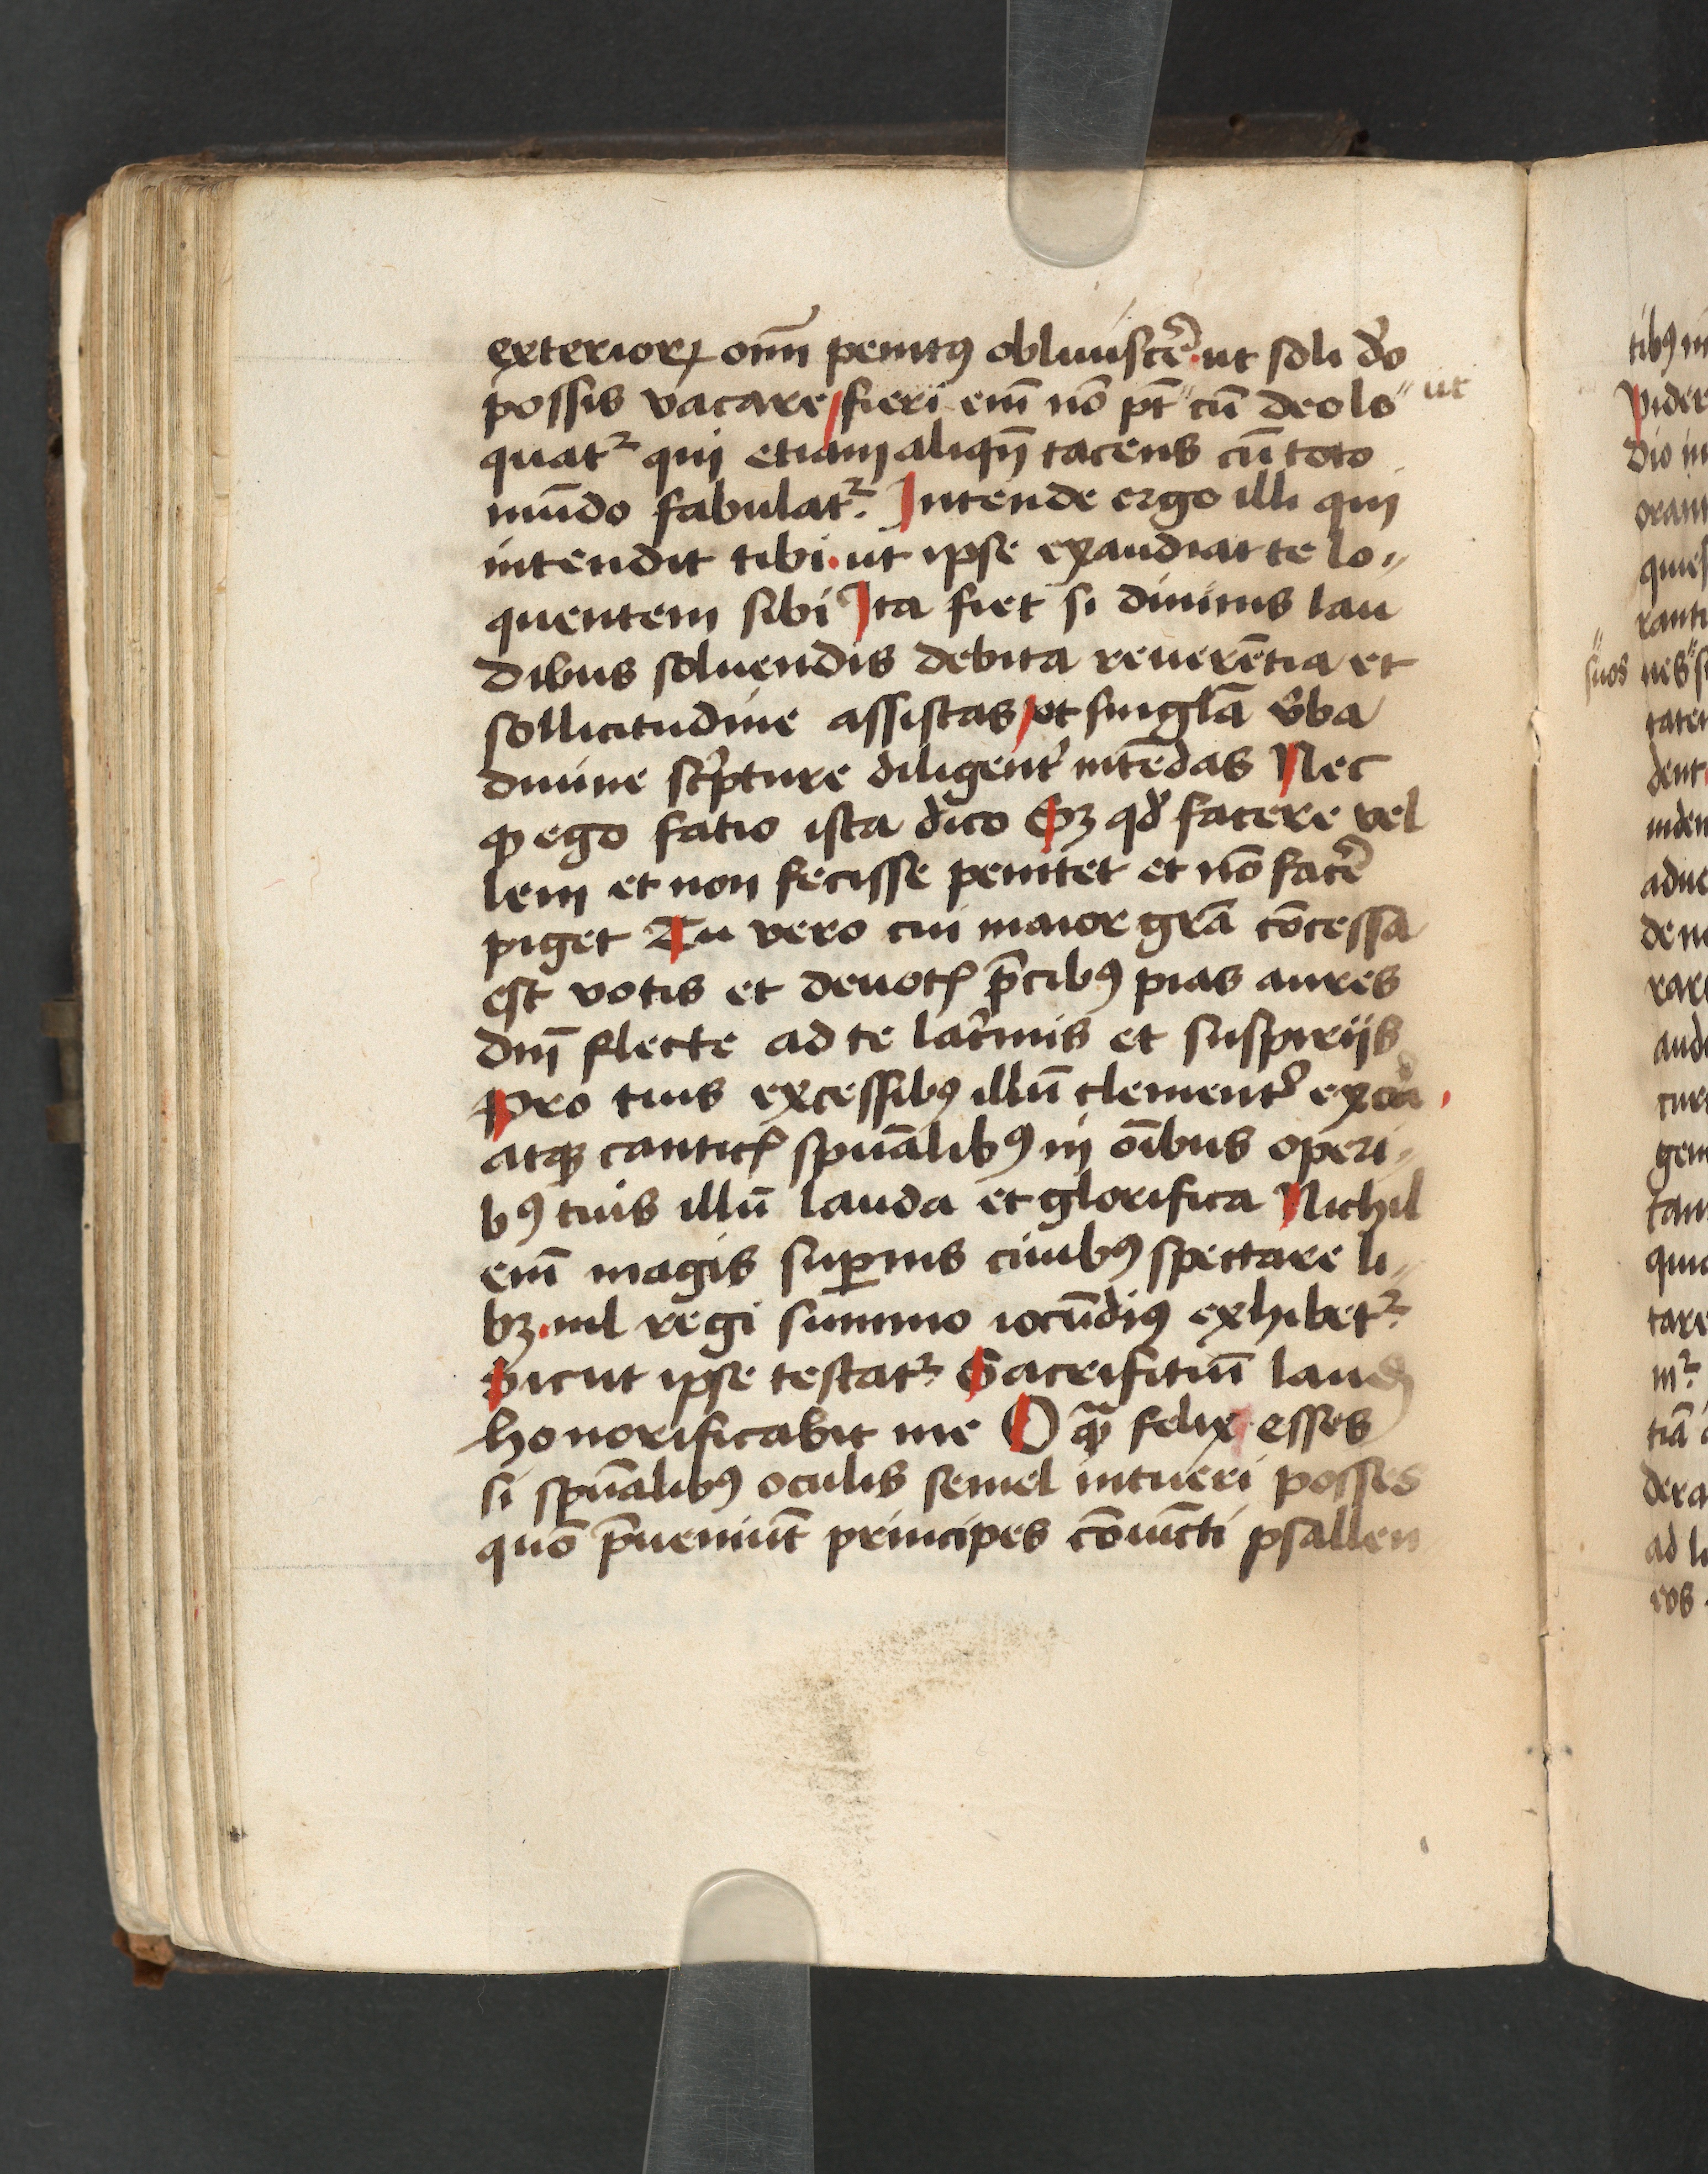 exterioꝝ om̅i penitꝰ obliuiscẽ. ut soli do̾
possis vacare / fieri em̅ no̅ pt̅ " cu̅ deo lo " ut
quatᷣ qui etiam aliqn̅ tacens cu̅ toto
mu̅do fabulatᷣ. Intende ergo illi qui
intendit tibi. ut ipse exaudiat te lo-
quentem sibi Ita fiet si diuinis lau
dibus soluendis debita reuere̅tia et
sollicitudine assistas / et singl̅a v̾ba
diuine sc̾pture diligent̾ inte̅das Nec
ꝙ ego fatio ista dico Sꝫ qd̾ facere vel
lem et non fecisse penitet et no̅ facẽ
piget Tu vero cui maior gr̅a co̅cessa
est votis et deuotꝭ p̅cibꝰ pias aures
dn̅i flecte ad te lac̾mis et suspirijs
Pro tuis excessibꝰ illu̅ clement̾ exora
atqꝫ canticꝭ spu̅alibꝰ in oı̅bus operi-
bꝰ tuis illu̅ lauda et glorifica Nichil
em̅ magis suꝑnis ciuibꝰ spectare li-
bꝫ. nil regi summo iocu̅diꝰ exhibetᷣ.
Sicut ipse testatᷣ Sacrifitiu̅ laudꝭ
honorificabit me O qᷓ felix esses
si spu̅alibꝰ oculis semel intueri posses
quo̅ p̅ueniu̅t principes co̅iu̅cti psallen